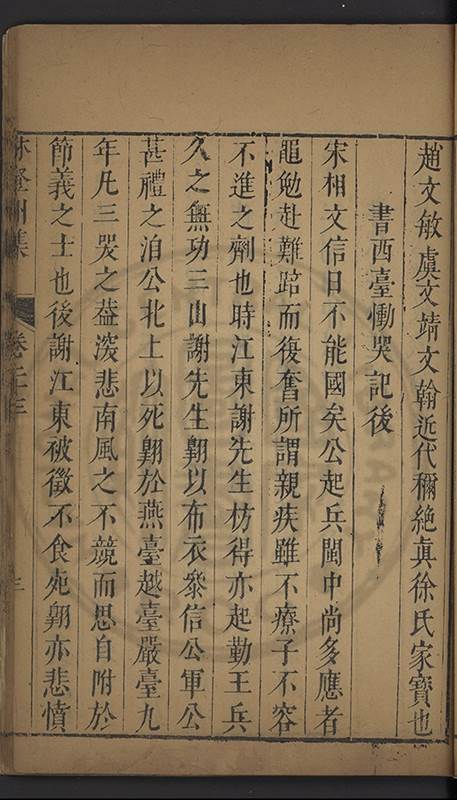 趙文敏虞文靖文翰近代稱絶真徐氏家寶也
書西臺慟哭記後
宋相文信日不能國矣公起兵閩中尚多應者
黽勉赴難踣而復奮所謂親疾雖不療子不容
不進之劑也時江東謝先生枋得亦起勤王兵
久之無功三山謝先生翱以布衣叅信公軍公
甚禮之洎公北上以死翱於燕臺越臺嚴臺九
年凡三哭之葢深悲南風之不競而思自附於
節義之士也後謝江東被徵不食死翱亦悲憤
林登州集
卷二十三
三